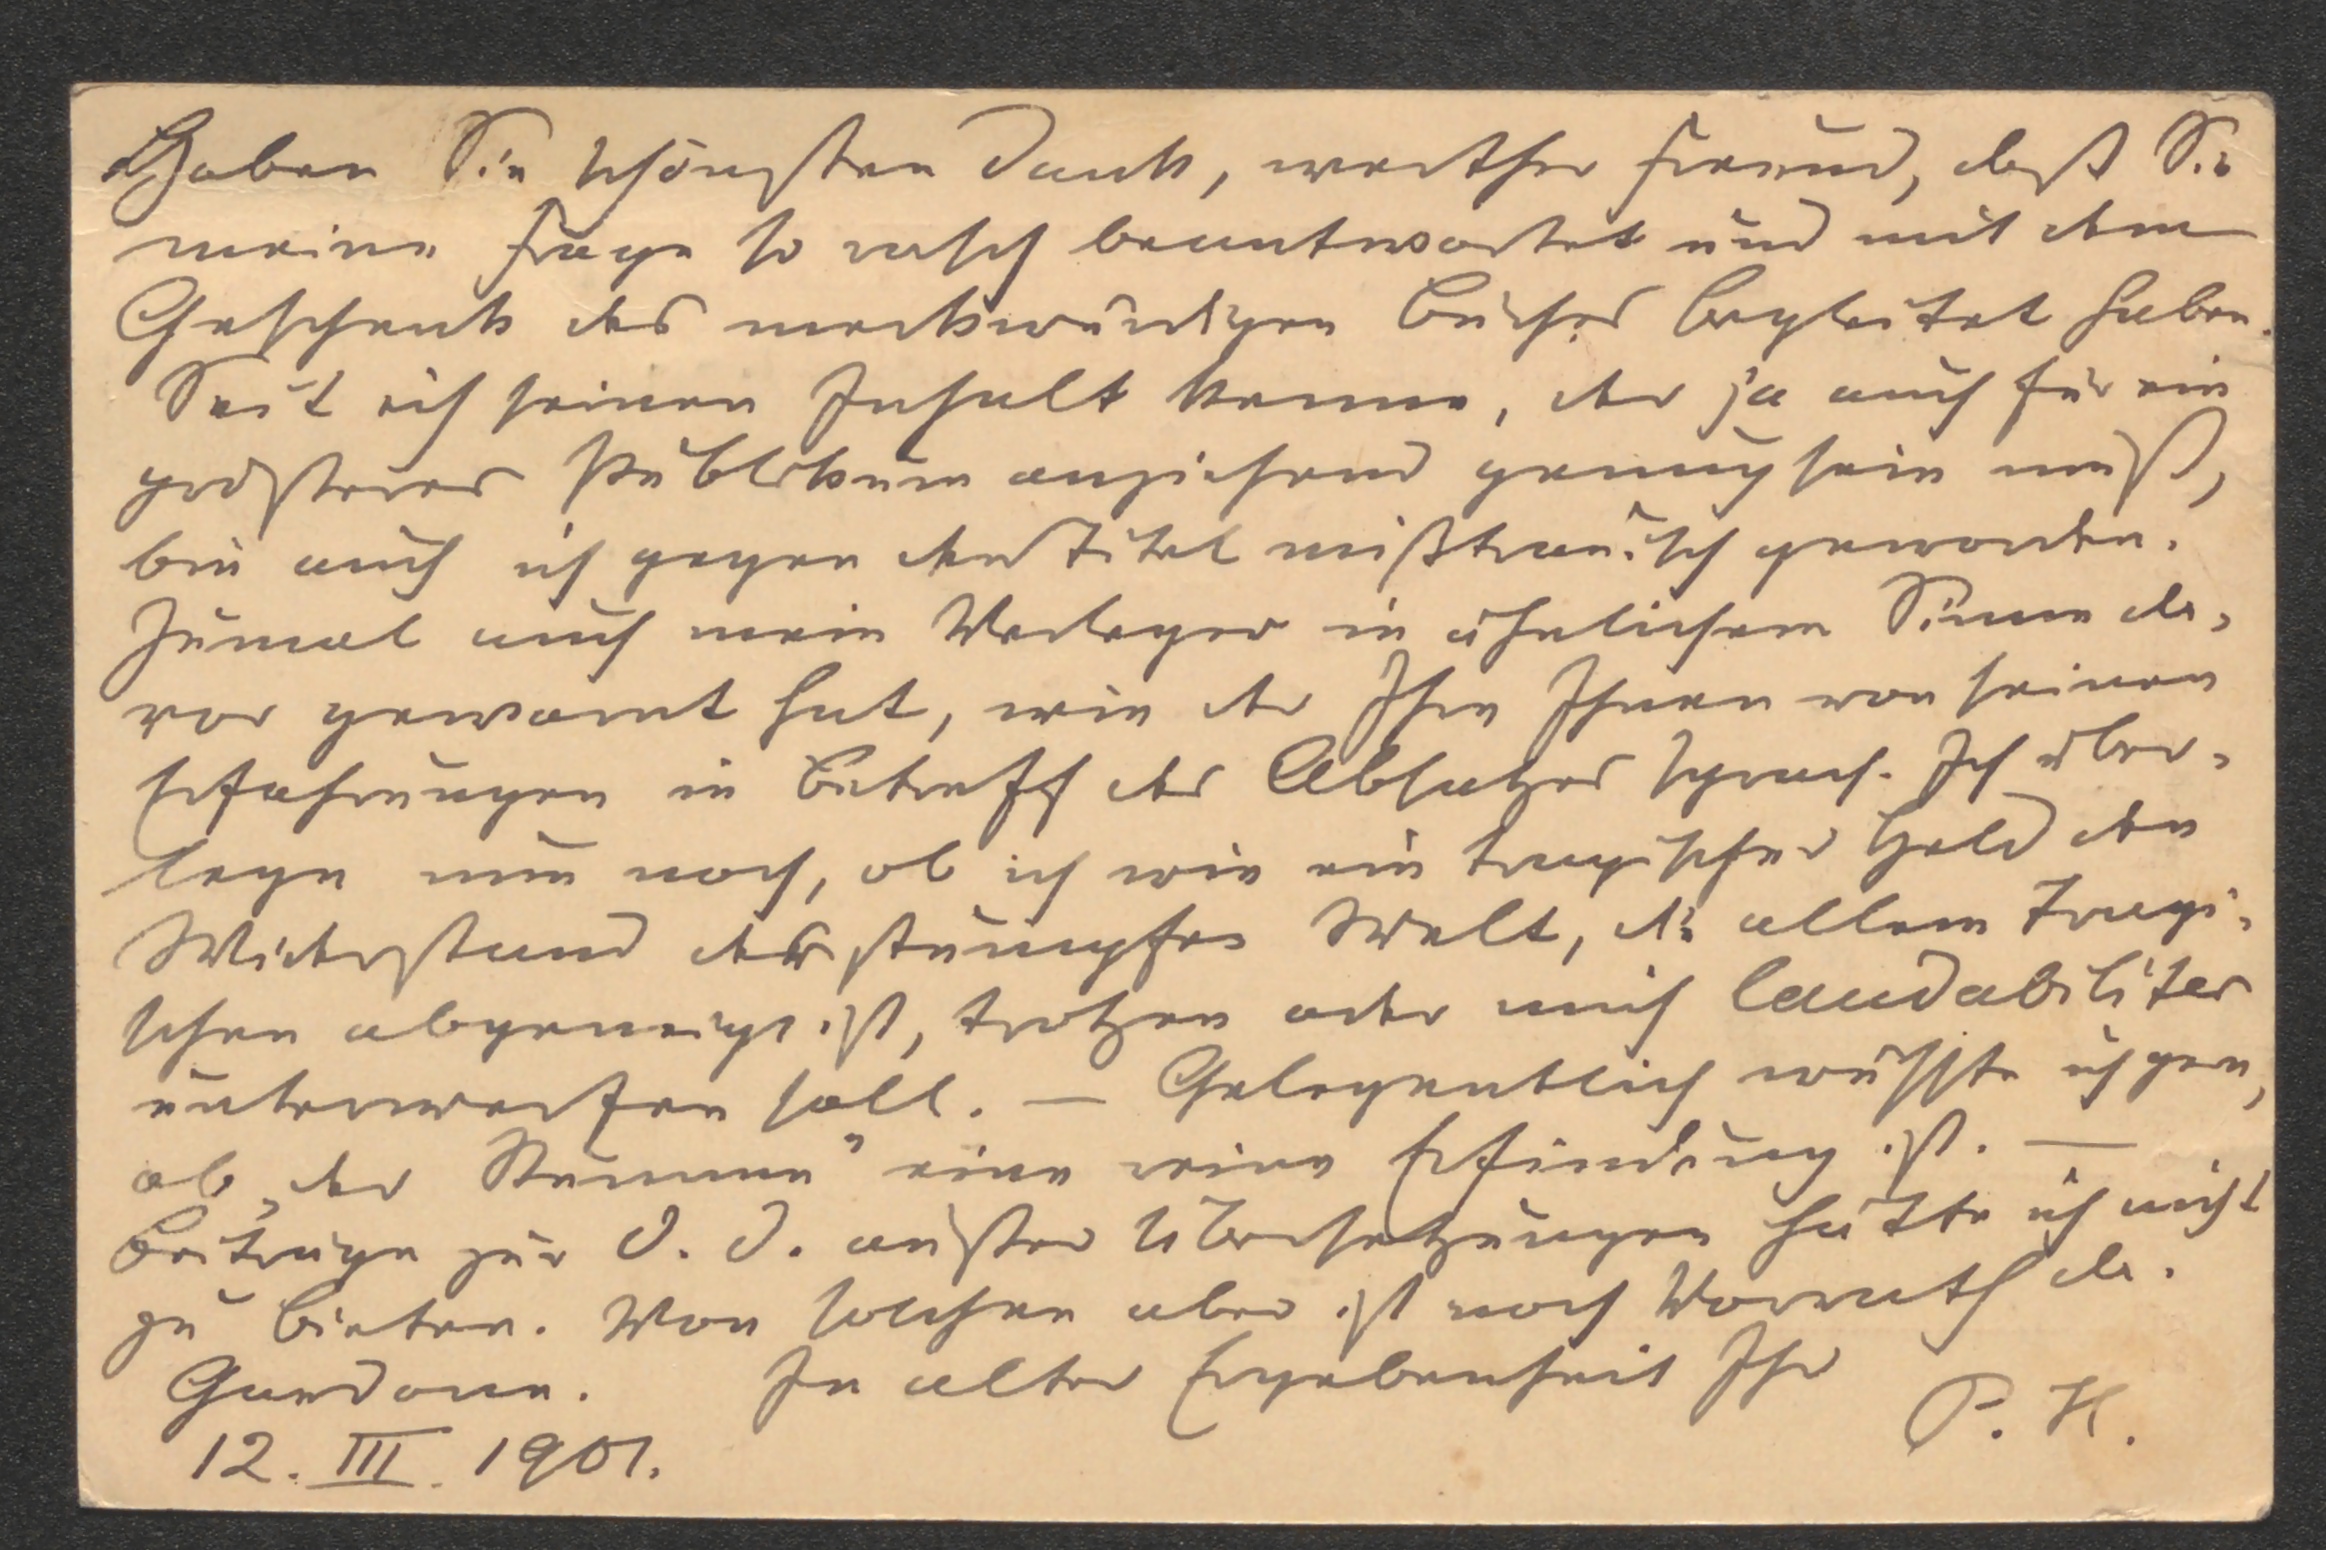 Haben Sie schönsten Dank, werther Freund, daß Sie
meine Frage so rasch beantwortet und mit dem
Geschenk des merkwürdigen Buches begleitet haben.
Seit ich seinen Inhalt kenne, der ja auch für ein
größeres Publikum anziehend genug sein muß,
bin auch ich gegen den Titel mißtrauisch geworden.
Zumal auch mein Verleger in ähnlichem Sinne da-
vor gewarnt hat, wie der Ihre Ihnen von seinen
Erfahrungen in Betreff des Absatzes sprach. Ich über-
lege nun noch, ob ich wie ein tragischer Held den
Widerstand der stumpfen Welt, die allem Tragi-
schen abgeneigt ist, trotzen oder mich laudabiliter
unterwerfen soll. — Gelegentlich wüßte ich gern,
ob „der Stumme" eine reine Erfindung ist. —
Beiträge zur D. D. außer Übersetzungen hätte ich nicht
zu bieten. Von solchen aber ist noch Vorrath da.
Gardone. In alter Ergebenheit Ihr
P. H.
12. III. 1901.